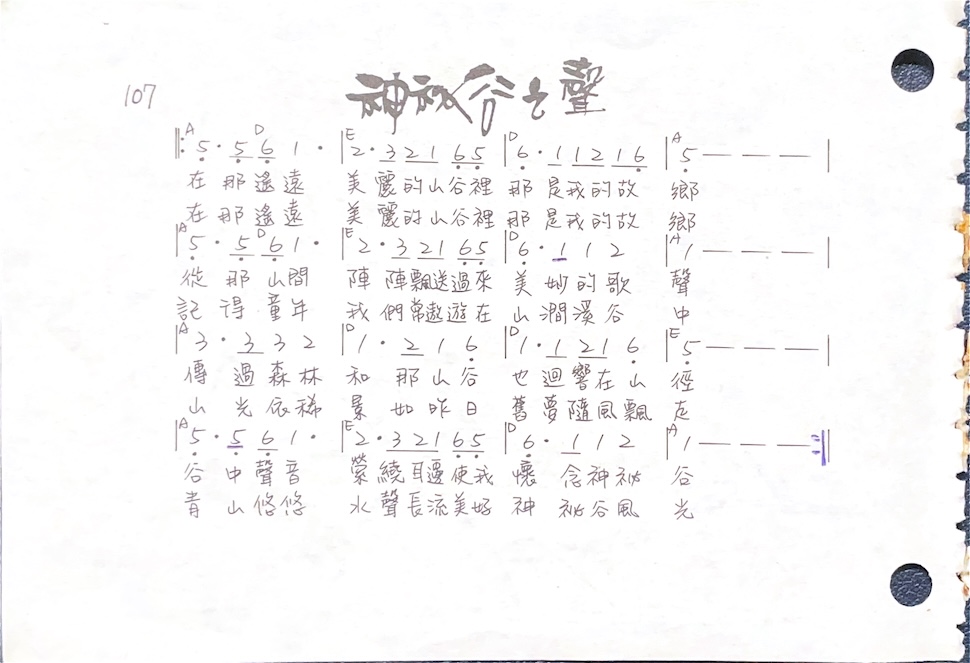 107
神秘谷之聲
A D E D A
5 · 5 6 1 · | 2 · 3 2 1 6 5 | 6 · 1 1 2 1 6 | 5 — — — |
在那遙遠 美麗的山谷裡 那是我的故 鄉
在那遙遠 美麗的山谷裡 那是我的故 鄉
A D E D A
5 · 5 6 1 · | 2 · 3 2 1 6 5 | 6 · 1 1 2 | 1 — — — |
從那山間 陣陣飄送過來 美妙的歌 聲
記得童年 我們常遨遊在 山澗溪谷 中
A D D E
3 · 3 3 2 | 1 · 2 1 6 | 1 · 1 2 1 6 | 5 — — — |
傳過森林 和那山谷 也迴響在山 徑
山光依稀 景如昨日 舊夢隨風飄 走
A E D A
5 · 5 6 1 · | 2 · 3 2 1 6 5 | 6 · 1 1 2 | 1 — — — :||
谷中聲音 縈繞耳邊使我 懷念神祕 谷
青山悠悠 水聲長流美好 神祕谷風 光